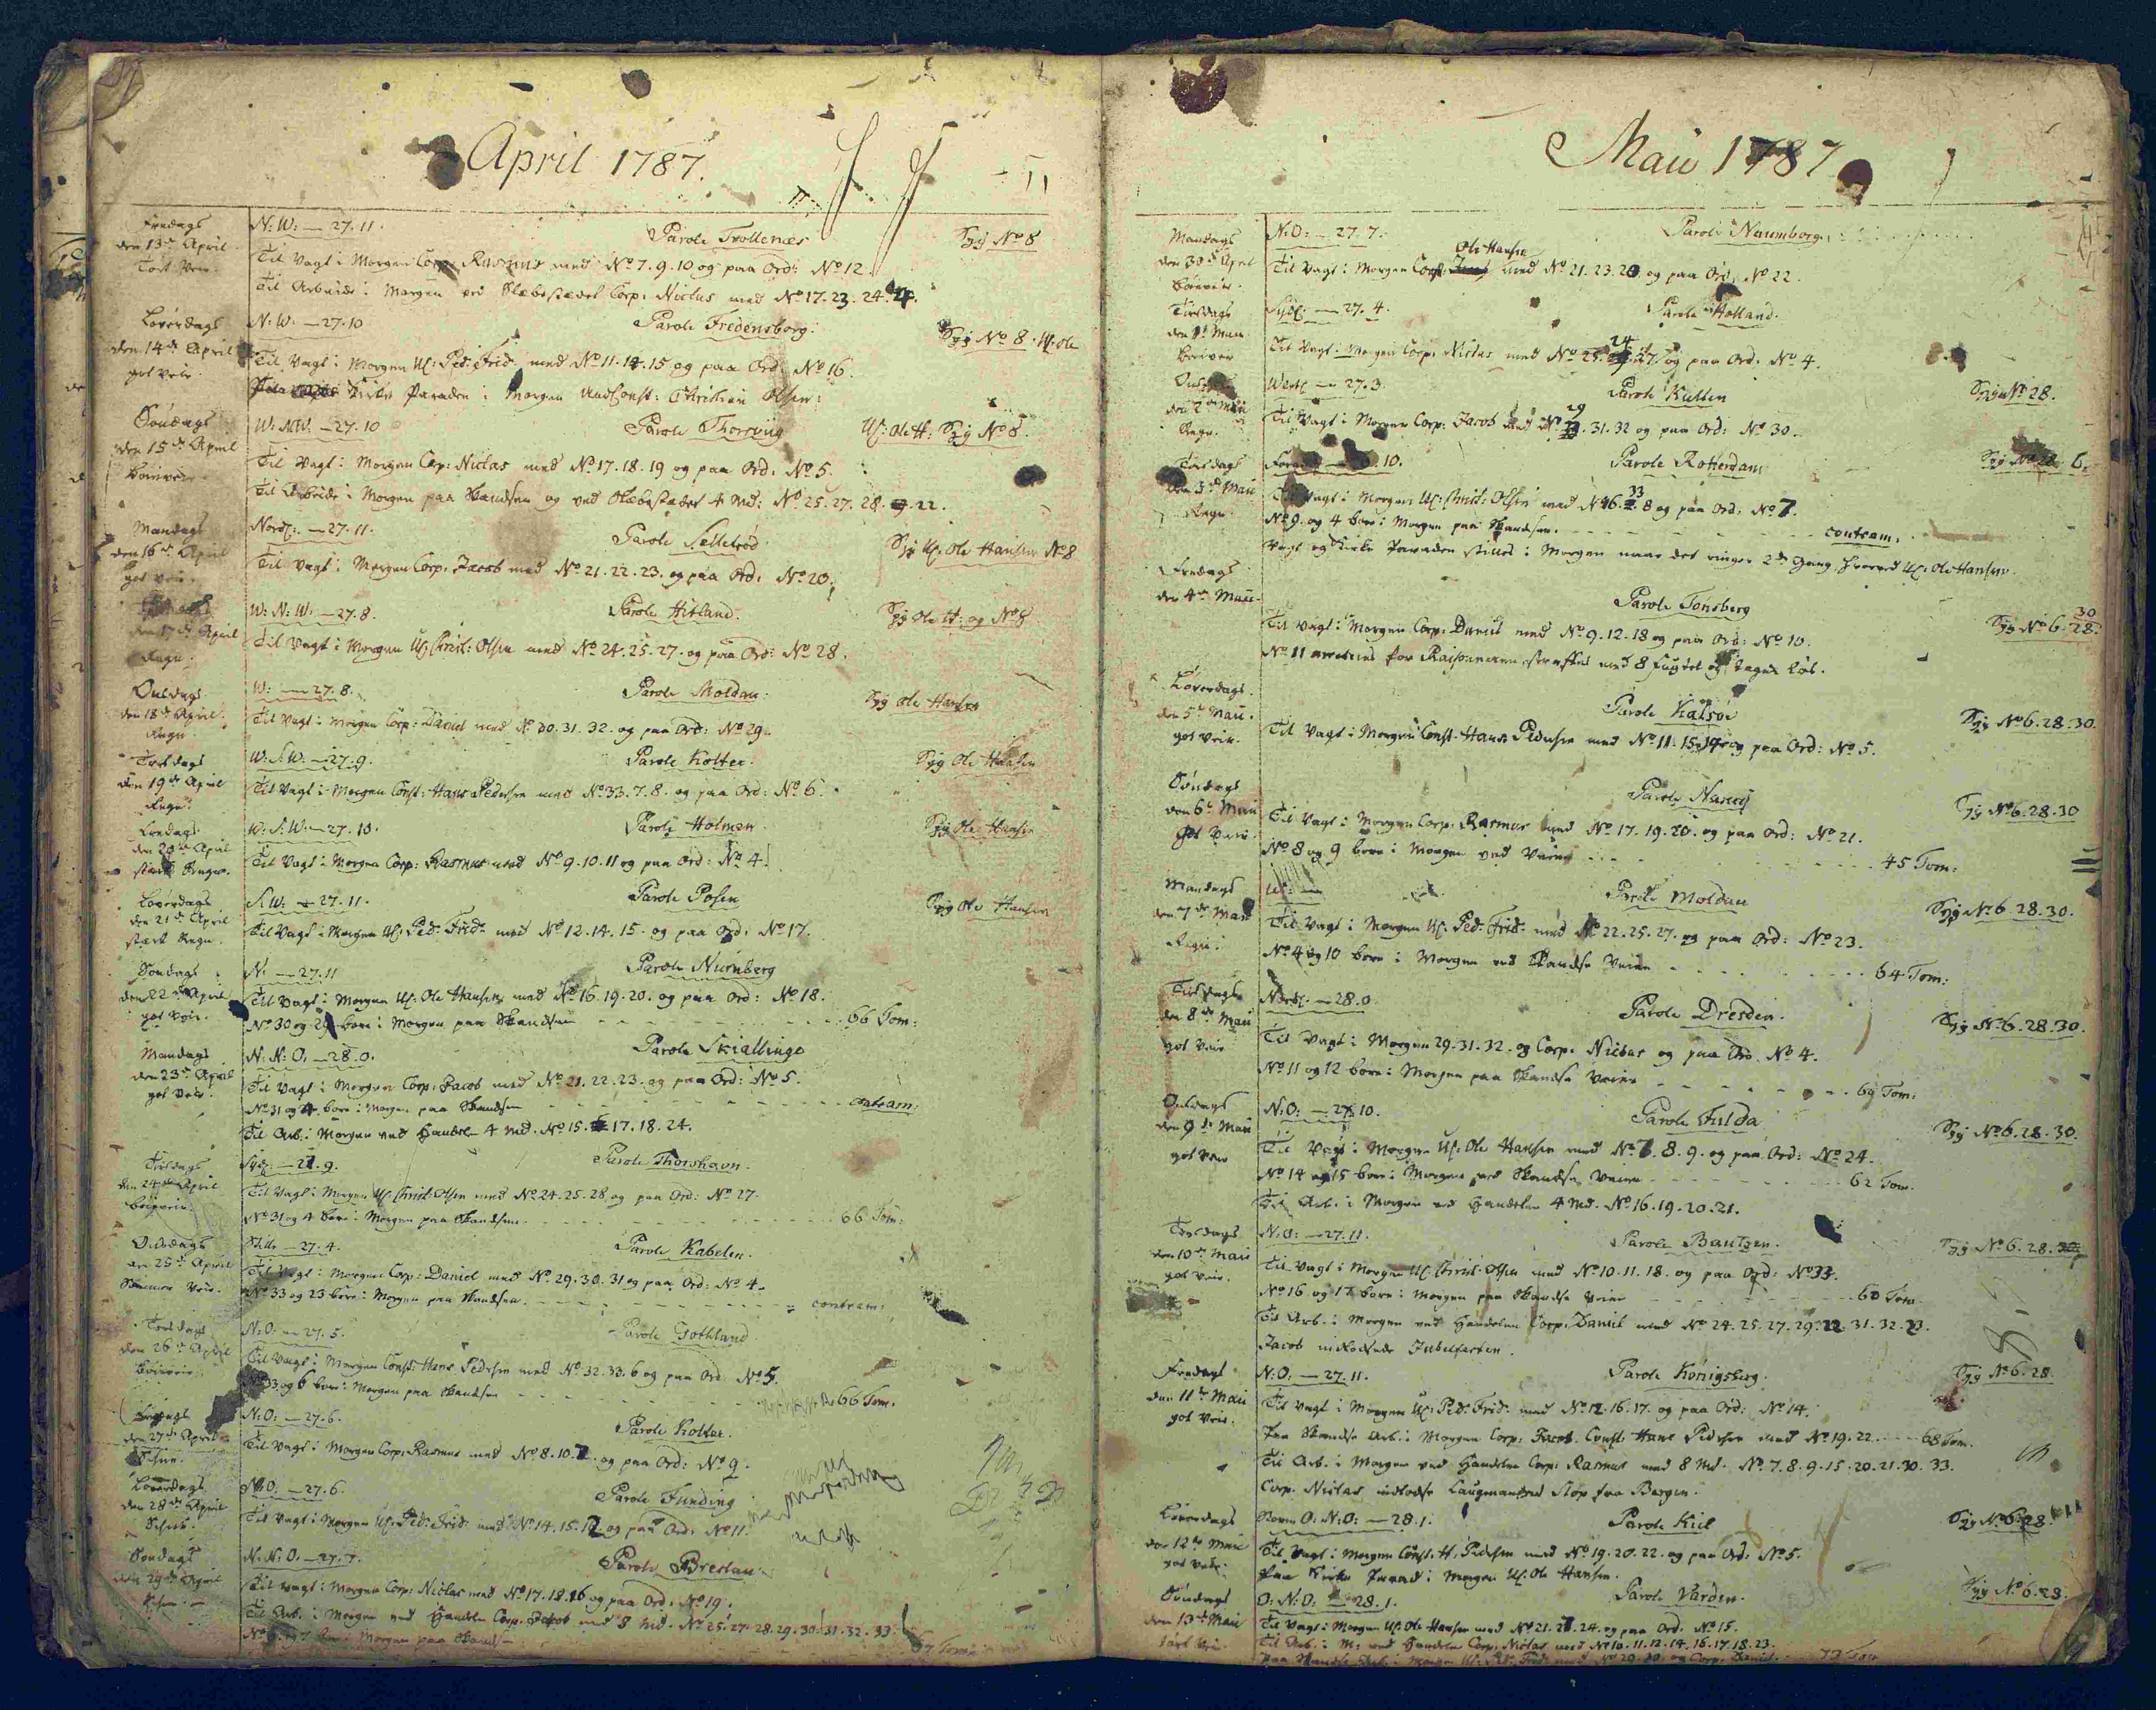 April 1787.
Fredags
den 13de April
Tort Veir.
N: W: — 27. 11.
Parole Trollenæs
Syg No 8
Til Vagt i Morgen Corp: Rasmus med No 7. 9. 10 og paa Ord: No 12.
Til Arbeide i Morgen ved Slæbestædet Corp: Niclas med No 17. 23. 24.
Løverdags
den 14de April
got Veir.
N: W. — 27. 10
Parole Fredensborg.
Syg No 8.
Til Vagt i Morgen U: Ped: Frid: med No 11. 14. 15 og paa Ord: No 16.
Kirke Paraden i Morgen Christian Olsen:
Søndags
den 15de April
W: N W. — 27. 10
Parole Thorsviig
U: Ole H: Syg No 8.
Til Vagt i Morgen Corp: Niclas med No 17. 18. 19 og paa Ord. No 5.
Til Arbeide i Morgen paa Skandsen og ved Slæbestædet 4 Md: No 25. 27. 28. 22.
Mandags
den 16de April
got Veir.
Nordl: — 27. 11.
Parole Selletrød
Syg U: Ole Hansen No 8
Til Vagt i Morgen Corp. Jacob med No 21. 22. 23. og paa Ord: No 20.
den 17de April
Regn.
W: N: W. — 27. 8.
Parole Hitland.
Syg Ole H: og No 8
Til Vagt i Morgen U: Christ: Olsen med No 24. 25. 27. og paa Ord: No 28.
Onsdags
den 18de April.
Regn
W: — 27. 8.
Parole Moldau.
Syg Ole Hansen
Til Vagt i Morgen Corp: Daniel med No 30. 31. 32. og paa Ord: No 29.
Torsdags
den 19de April
Regn.
W: S: W. — 27. 9.
Parole Kolter.
Syg Ole Hansen
Til Vagt i Morgen Const: Hans Pedersen med No 33. 7. 8. og paa Ord: No 6.
Fredags
den 20de April
stærk Regn.
W: S: W. — 27. 10.
Parole Holmen
Syg Ole Hansen
Til Vagt i Morgen Corp: Rasmus med No 9. 10. 11 og paa Ord: No 4.
Løverdags
den 21de April
stært Regn.
S. W: — 27. 11.
Parole Posen
Syg Ole Hansen
Til Vagt i Morgen U: Ped: Frid: med No 12. 14. 15. og paa Ord: No 17.
Søndags
den 22de April
got Veir.
N. — 27. 11
Parole Nurnberg
Til Vagt i Morgen U: Ole Hansen med No 16. 19. 20. og paa Ord: No 18.
No 30 og 29 bore i Morgen paa Skandsen — 66 Tom:
Mandags
den 23de April
got Veir.
N. N: O. — 28. 0.
Parole Skiallinge
Til Vagt i Morgen Corp: Jacob med No 21. 22. 23. og paa Ord: No 5.
No 31 og 4. bore i Morgen paa Skandsen — contram:
Til Arb: i Morgen ved Handelen 4 Md. No 15. 17. 18. 24.
Tirsdags
den 24de April
Sydl: — 27. 9.
Parole Thorshavn.
Til Vagt i Morgen U: Christ: Olsen med No 24. 25. 28. og paa Ord: No 27.
No 31 og 4 bore i Morgen paa Skandsen — 66 Tom:
Onsdags
den 25de April
Sommer Veir.
Stille — 27. 4.
Parole Kabelen.
Til Vagt i Morgen Corp: Daniel med No 29. 30. 31 og paa Ord: No 4.
No 33 og 23 bore i Morgen paa Skandsen. — contram:
Torsdags
den 26de April
N: O: — 27. 5.
Parole Gothland
Til Vagt i Morgen Const: Hans Pedersen med No 32. 33. 6 og paa Ord: No 5.
No 33 og 6 bore i Morgen paa Skandsen — 66 Tom.
Fredags
den 27de April
N: O: — 27. 6.
Parole Kolter.
Til Vagt i Morgen Corp: Rasmus med No 8. 10. 7. og paa Ord: No 9.
Løverdags
den 28de April
N: O. — 27. 6.
Parole Funding
Til Vagt i Morgen U: Ped: Frid: med No 14. 15. 12 og paa Ord: No 11.
Søndags
den 29de April
N. N: O. — 27. 7.
Parole Breslau
Til Vagt i Morgen Corp: Niclas med No 17. 18. 16 og paa Ord: No 19.
Til Arb: i Morgen ved Handelen Corp. Jacob med 8 Md. No 25. 27. 28. 29. 30. 31. 32. 33.
bore i Morgen paa Skandsen — 67 Tom:
Maii 1787
Mandags
den 30de April
N: O: — 27. 7.
Parole Naumborg.
Ole Hansen
Til Vagt i Morgen med No 21. 23. 20 og paa Ord: No 22.
Tirsdags
den 1te Maii
Sydl: — 27. 4.
Parole Holland.
24
Til Vagt i Morgen Corp: Niclas med No 25. 27. og paa Ord. No 4.
den 2de Maii
Regn.
Westl. — 27. 3.
Parole Kullen
Syg No 28.
29
Til Vagt i Morgen Corp: Jacob med No 31. 32 og paa Ord: No 30.
Torsdags
den 3de Maii
Regn.
10.
Parole Rotterdam
33
Til Vagt i Morgen U: Christ: Olsen med No 8 og paa Ord. No 7.
No 9. og 4 bore i Morgen paa Skandsen. — contram.
Vagt og Kirke Paraden stilles i Morgen naar det ringer 2de Gang, hvorved U: Ole Hansen.
Fredags
den 4de Maii
Parole Tønsberg
30
Syg No 6. 28.
Til Vagt i Morgen Corp: Daniel med No 9. 12. 18 og paa Ord: No 10.
Løverdags.
den 5te Maii.
got Veir.
Parole Kalsøe
Syg No 6. 28. 30.
Til Vagt i Morgen Const. Hans Pedersen med No 11. 15. 14 og paa Ord: No 5.
Søndags
den 6te Maii
got Veir.
Syg No 6. 28. 30
Til Vagt i Morgen Corp: Rasmus med No 17. 19. 20. og paa Ord: No 21.
No 8 og 9 bore i Morgen ved Veien — 45 Tom:
Mandags
den 7de Maii
Regn.
Parole Moldau
Syg No 6 28. 30.
Til Vagt i Morgen U: Ped: Frid: med No 22. 25. 27. og paa Ord: No 23.
No 4 og 10 bore i Morgen ved Skandse Veien — 64 Tom:
Tirsdags
den 8de Maii
got Veir
Nordl: — 28. 0.
Parole Dresden.
Syg No 6. 28. 30.
Til Vagt i Morgen 29. 31. 32. og Corp. Niclas og paa Ord. No 4.
No 11 og 12 bore i Morgen paa Skandse Veien — 69 Tom:
Onsdags
den 9de Maii
got Veir
N: O: — 27. 10.
Parole Fulda
Syg No 6. 28. 30.
Til Vagt i Morgen U: Ole Hansen med No 7. 8. 9. og paa Ord: No 24.
No 14 og 15 bore i Morgen ved Skandse Veien — 62 Tom.
Til Arb. i Morgen ved Handelen 4 Md. No 16. 19. 20. 21.
Torsdags
den 10de Maii
got Veir.
N: O: — 27. 11.
Parole Bautzen.
Syg No 6. 28.
Til Vagt i Morgen U: Christ: Olsen med No 10. 11. 18. og paa Ord: No 33.
No 16 og 17 bore i Morgen paa Skandse Veien — 60 Tom
Til Arb. i Morgen ved Handelen Corp. Daniel med No 24. 25. 27. 29. 22. 31. 32. 23.
Jacob
Fredags
den 11te Maii
got Veir.
N: O: — 27. 11.
Parole Kønigsberg.
Syg No 6. 28
Til Vagt i Morgen U: Ped: Frid: med No 12. 16. 17. og paa Ord: No 14.
Paa Skandse Arb: i Morgen Corp: Jacob. Const: Hans Pedersen med No 19. 22. — 68 Tom.
Til Arb. i Morgen ved Handelen Corp: Rasmus med 8 Md. No 7. 8. 9. 15. 20. 21. 30. 33.
Corp. Niclas Slop fra Bergen.
Løverdags
den 12te Maii
got Veir.
O. N: O: — 28. 1.
Parole Kiel
Syg No 6. 28
Til Vagt i Morgen Const: H. Pedersen med No 19. 20. 22. og paa Ord: No 5.
Paa Kirke Parad: i Morgen U: Ole Hansen.
Søndags
den 13de Maii
O: N: O: — 28. 1.
Parole Varden.
Syg No 6. 28.
Til Vagt i Morgen U: Ole Hansen med No 21. 24. og paa Ord. No 15.
Til Arb: i M: ved Handelen Corp: Niclas med No 10. 11. 12. 14. 16. 17. 18. 23.